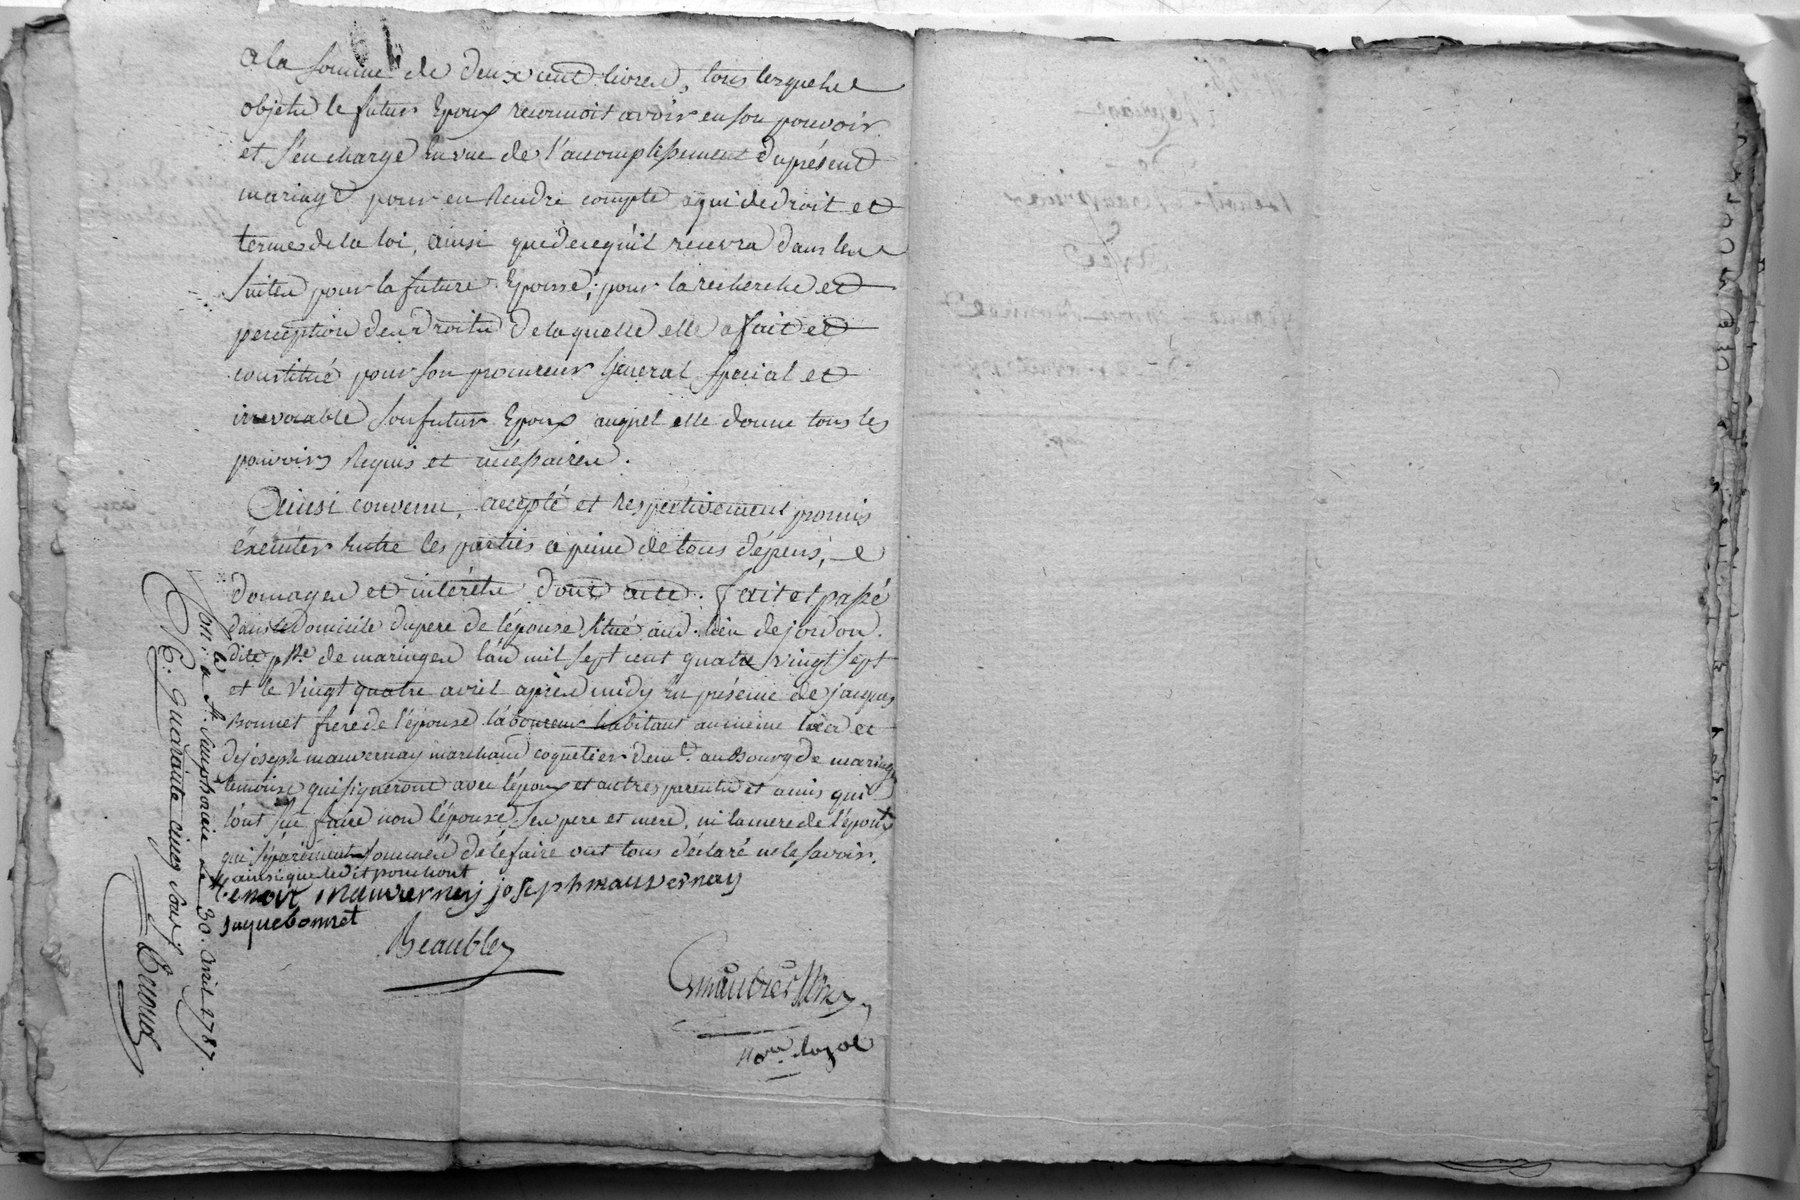 a la somme de deux cent livres, tous lesquels
objets le futur Epoux reconnoit avoir en son pouvoir
et s'en charge En vue de l'acomplissement du présent
mariage pour en Rendre compte a qui de droit et
termes de la loi, ainsi que de ce qu'il recevra dans les
suites pour la future Epouse; pour la recherche et
perception des droits de laquelle elle a fait et
constitué pour son procureur General Special et
irrevocable son futur Epoux auquel elle donne tous les
pouvoirs Requis et nécessaires.
Ainsi convenu, accepté et respectivement promis
éxécuter Entre les parties a peine de tous dépens,
domages et intérêts dont acte. fait et passé
dans le domicile du pere de l'épouse Situé aud. lieu de jordon
dite psse. de maringes l'an mil sept cent quatre vingt sept
et le vingt quatre avril après midy En présence de jacques
Bonnet frere de l'épouse laboureur habitant au même lieu et
de joseph mauvernay marchand coquetier dem.t au Bourg de maringes
temoins qui signeront avec l'époux et autres parents et amis qui
l'ont sçu faire non l'épouse ses pere et mere, ni la mere de l'époux
qui séparément sommés de le faire ont tous déclaré ne le savoir.
ainsi que ledit ponchont
Benoit Mauvernay joseph mauvernay
Jaque bonnet
Beaublez
Nore. Royal
Con. à St. Simphorien le 30. Avril 1787.
R. quarante cinq sous